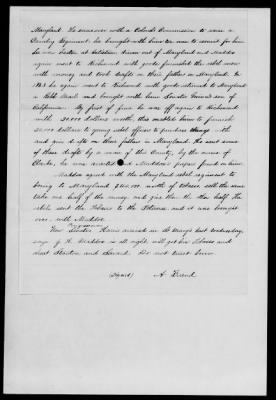 Maryland. He came over with a Colonel's Commission to raise a
Cavalry Regiment he brought with him two men to recruit for him
he was beaten at driven out of Maryland and Maddox
again went to Richmond with goods furnished the rebel army
with money and took drafts on their fathers in Maryland. In
1863 he again went to Richmond with goods returned to Maryland
a Rebel and brought with him son of
California. By first of June he was off again to Richmond
with 30.000 dollars worth, this enabled him to furnish
20.000 dollars to young rebel officers to purchase with
and give drafts on their fathers in Maryland. He sent some
of these drafts by a man of this County, by the name of
he was arrested and Maddox's papers found on him.
Maddox agreed with the Maryland rebel agent to
bring to Maryland worth of tobacco sell the same
take one half of the money and give them the other half. The
rebels sent the tobacco to the Potomac and it was brought
over with Maddox.
Now Harris arrived in St Mary's last Wednesday,
says J. H. Maddox is all right will get his tobacco and
that Stanton and Seward do not trust
(Signed) A. Friend